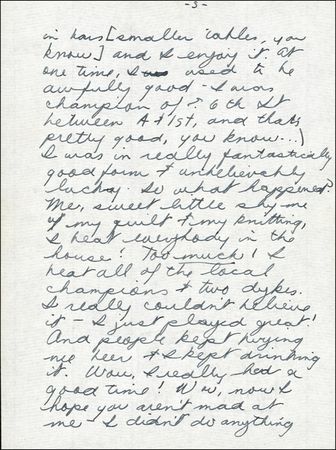 -3-
in bars [smaller tables, you
know] and I enjoy it. At
one time, I was used to be
awfully good - I was
champion of ? 6th St
between A + 1st, and thats
pretty good, you know...)
I was in really fantastically
good form + unbelievably
lucky. So what happened?
Me, sweet little shy me
of my quilt + my knitting,
I beat everybody in the
house! Too much! I
beat all of the local
champions + two dykes.
I really couldn't believe
it - I just played great!
And people kept buying
me beer + I kept drinking
it. Wow, I really had a
good time! Now, now I
hope you aren't mad at
me - I didn't do anything